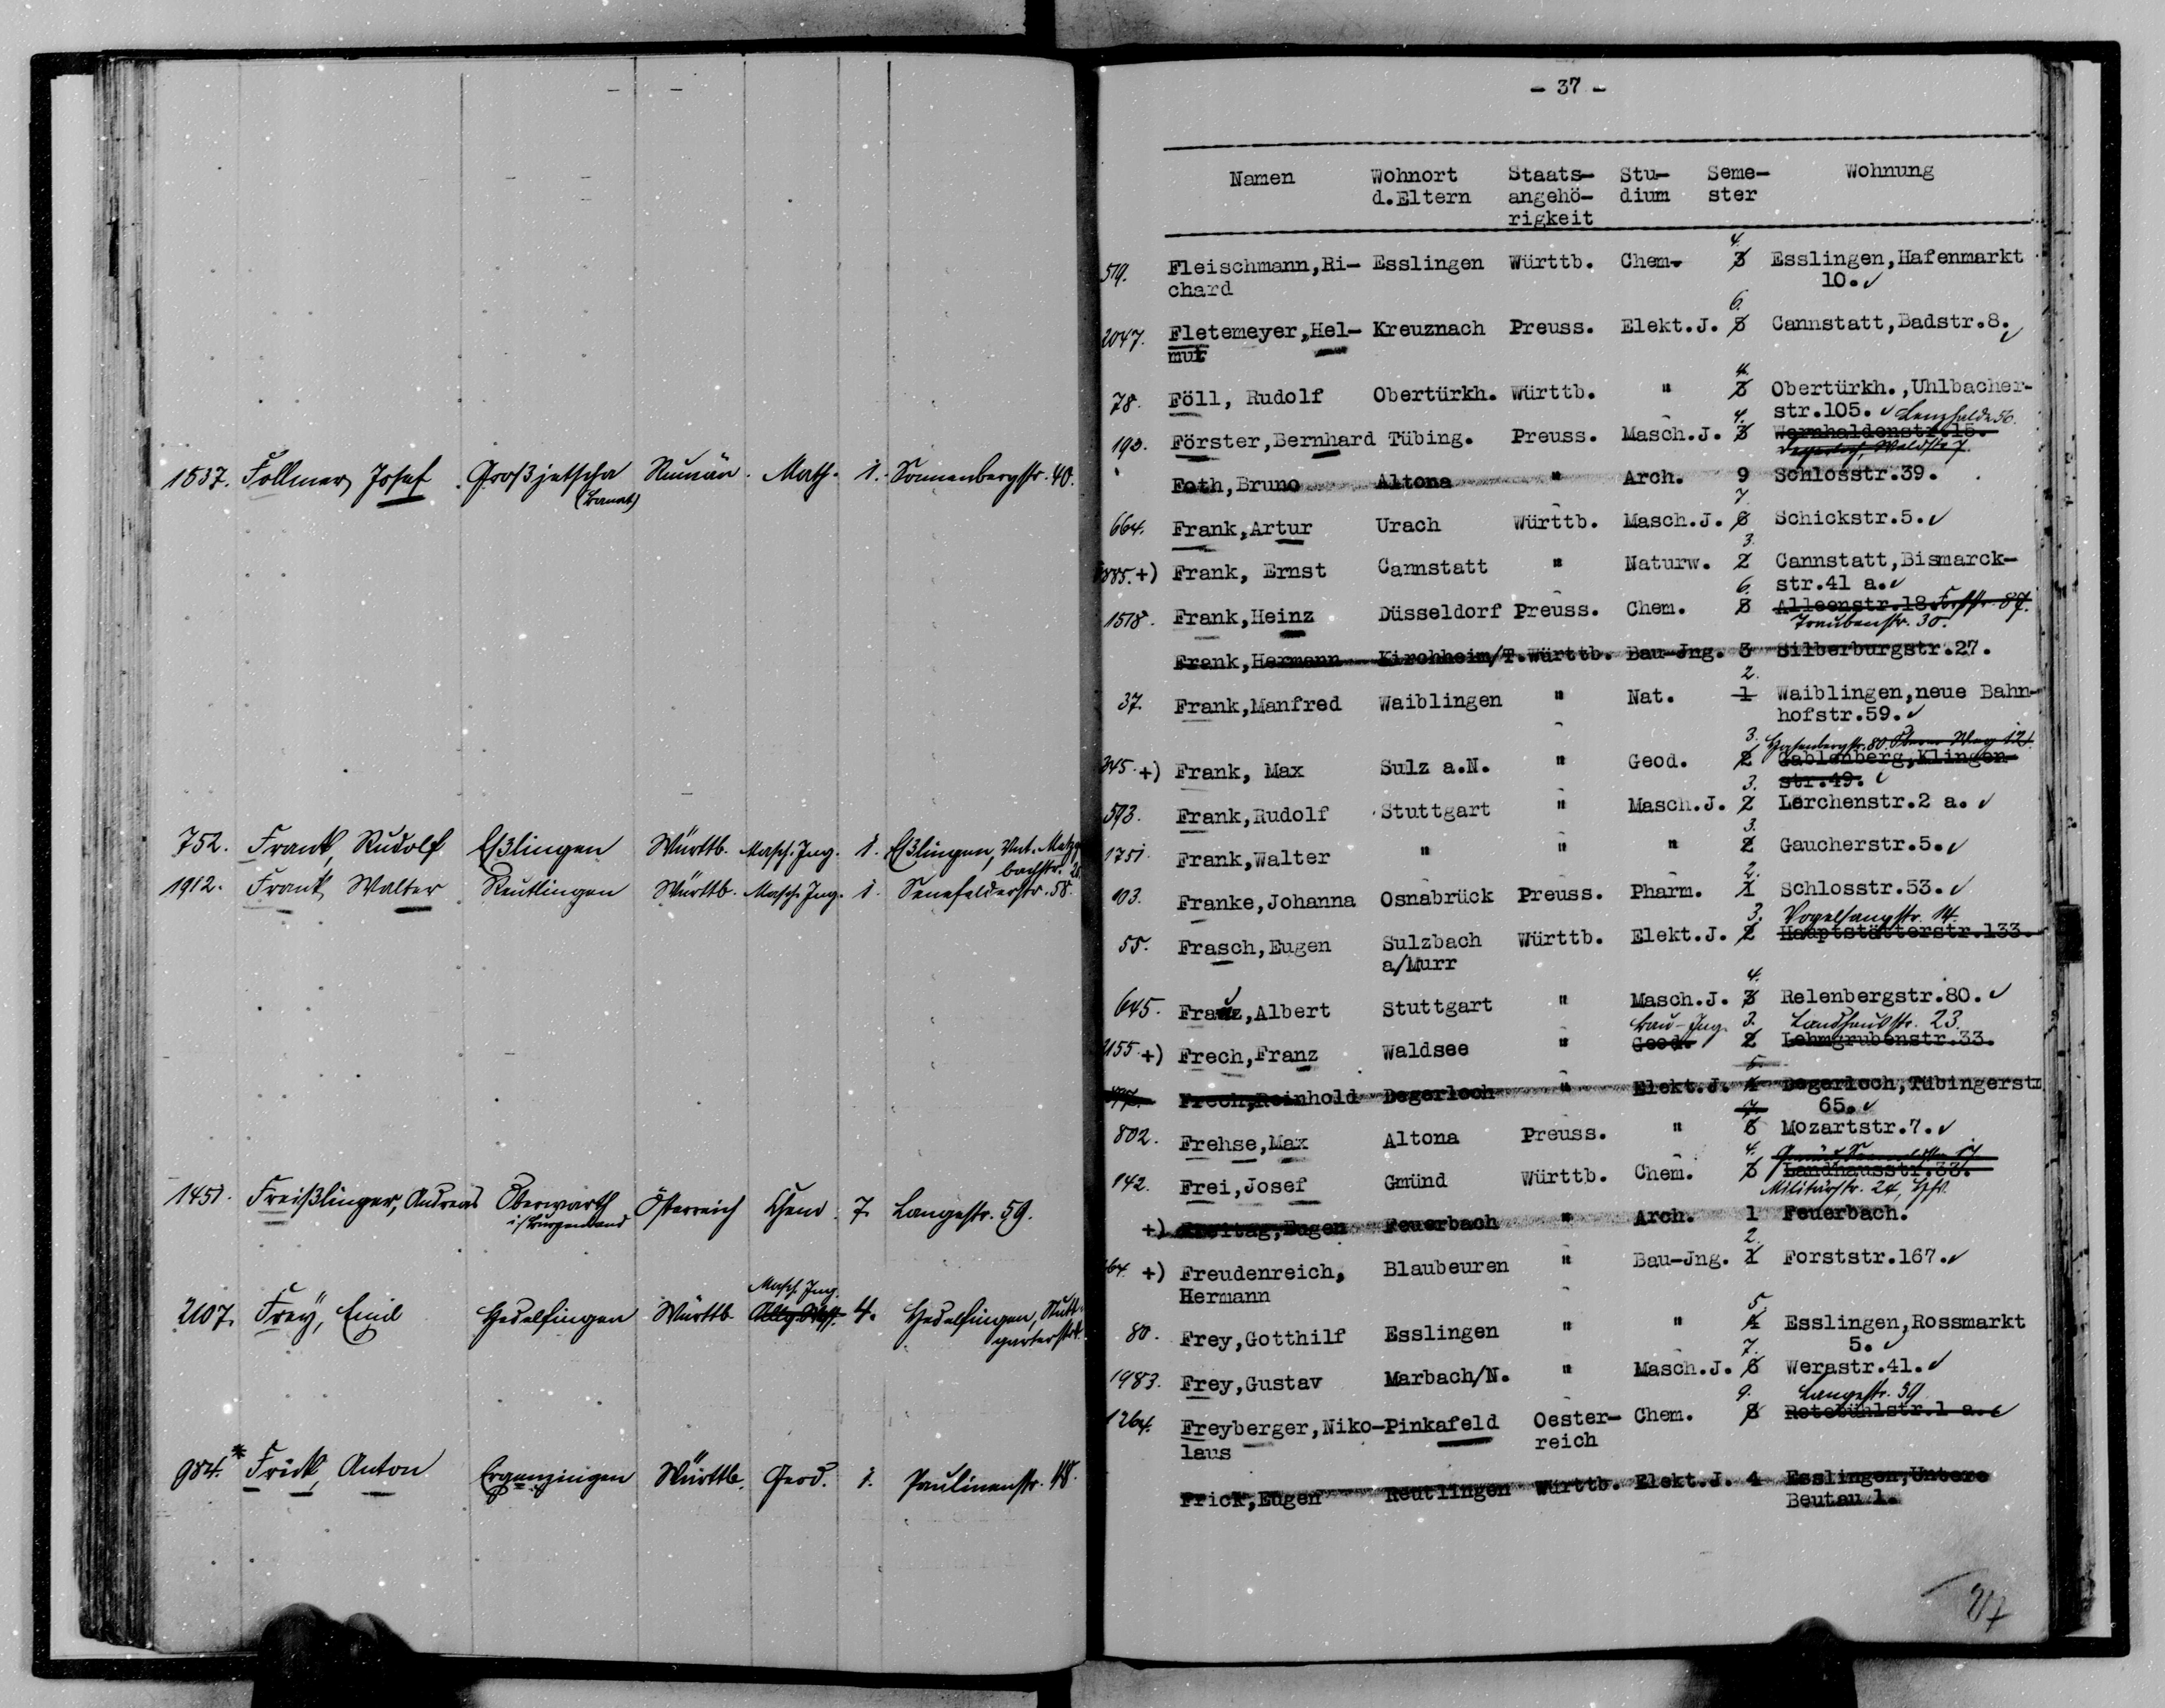 1537. Follmer, Josef Großjetscha Rumän. Math. 1. Sonnenbergstr. 40.
(Banat)
752. Frank, Rudolf Eßlingen Württb. Masch. Ing. 1. Eßlingen, Unt. Metzg
bachstr. 28
1912. Frank, Walter Reutlingen Württb. Masch. Ing. 1. Senefelderstr. 58.
1451. Freißlinger, Andreas Oberwarth Österreich Chem. 7. Langestr. 59.
i/Burgenland
Masch. Ing.
2107. Frey, Emil Hedelfingen Württb. 4. Hedelfingen, Stutt-
garterstr.
984.* Frick, Anton Ergenzingen Württb. Geod. 1. Paulinenstr. 48.
- 37 -
Namen Wohnort Staats- Stu- Seme- Wohnung
d.Eltern angehö- dium ster
rigkeit
4.
519. Fleischmann,Ri- Esslingen Württb. Chem. 3 Esslingen,Hafenmarkt
chard 10.✓
6.
2047. Fletemeyer,Hel- Kreuznach Preuss. Elekt.J. 5 Cannstatt,Badstr.8.✓
mut
4.
78. Föll, Rudolf Obertürkh. Württb. " 3 Obertürkh.,Uhlbacher-
str.105. ✓ Lenzhalde 56.
4.
193. Förster,Bernhard Tübing. Preuss. Masch.J. 3 Wormhaldenstr.15.
Degerloch, Waldstr. 7.
Foth,Bruno Altona " Arch. 9 Schlosstr.39.
7
664. Frank,Artur Urach Württb. Masch.J. 6 Schickstr.5.✓
3.
885.+) Frank, Ernst Cannstatt " Naturw. 2 Cannstatt,Bismarck-
str.41 a.✓
6.
1518. Frank,Heinz Düsseldorf Preuss. Chem. 5 Alleenstr.18. 87.
Traubenstr. 30.
Frank,Hermann Kirchheim/T.Württb. Bau-Jng. 3 Silberburgstr.27.
2.
37. Frank,Manfred Waiblingen " Nat. 1 Waiblingen,neue Bahn-
hofstr.59.✓
3. Hasenbergstr. 80. Weg 12.
345. +) Frank, Max Sulz a.N. " Geod. 2 Gablenberg,Klingen-
str.49. ✓
3.
593. Frank,Rudolf Stuttgart " Masch.J. 2 Lerchenstr.2 a. ✓
3.
1751. Frank,Walter " " " 2 Gaucherstr.5.✓
2.
103. Franke,Johanna Osnabrück Preuss. Pharm. 1 Schlosstr.53.✓
3. Vogelsangstr. 14.
55. Frasch,Eugen Sulzbach Württb. Elekt.J. 2 Hauptstätterstr.133.
a/Murr
4.
645. Frauz,Albert Stuttgart " Masch.J. 3 Relenbergstr.80.✓
Bau-Ing. 3. Landhausstr. 23.
2155 +) Frech,Franz Waldsee " Geod. 2 Lehmgrubenstr.33.
5.
Frech,Reinhold Degerloch " Elekt.J. 4 Degerloch,Tübingerstr
65.✓
7
802. Frehse,Max Altona Preuss. " 6 Mozartstr.7.✓
4.
142. Frei,Josef Gmünd Württb. Chem. 3 Landhausstr.33.
Militärstr. 24, Hfs.
+) Freitag,Eugen Feuerbach " Arch. 1 Feuerbach.
2.
64. +) Freudenreich, Blaubeuren " Bau-Jng. 1 Forststr.167.✓
Hermann
5.
80. Frey,Gotthilf Esslingen " " 4 Esslingen,Rossmarkt
5.✓
7.
1983. Frey,Gustav Marbach/N. " Masch.J. 6 Werastr.41.✓
9. Langestr. 59
1264. Freyberger,Niko-Pinkafeld Oester- Chem. 8 Rotebühlstr.1 a.✓
laus reich
Frick,Eugen Reutlingen Württb. Elekt.J. 4 Esslingen,Untere
Beutau 1.
27